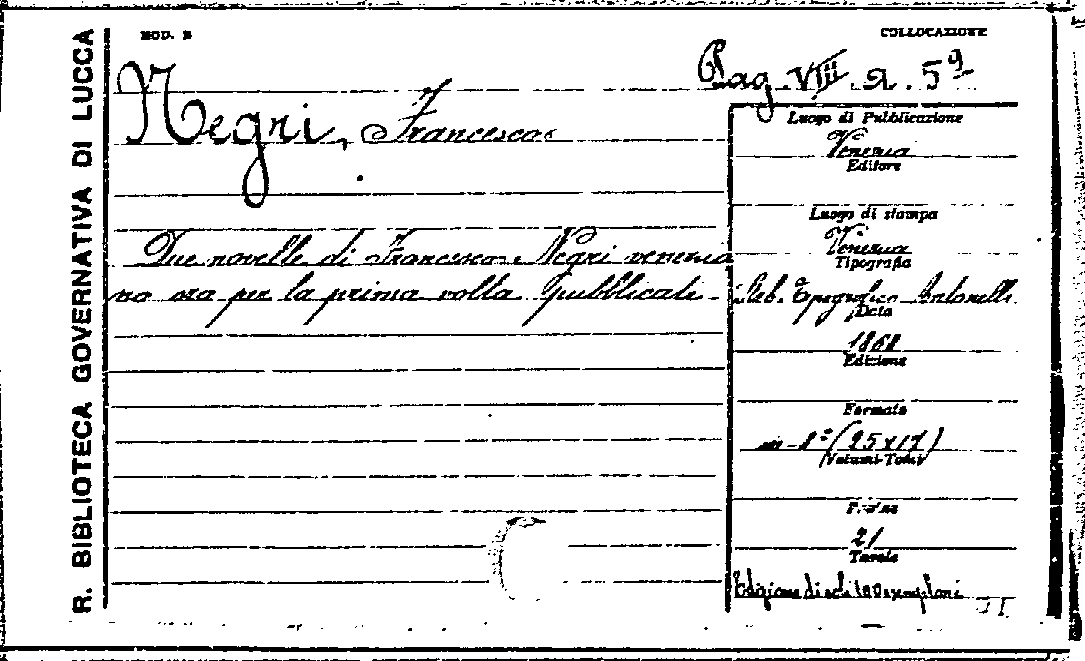 R. BIBLIOTECA GOVERNATIVA DI LUCCA
MOD. B
COLLOCAZIONE
Pag. VIII a. 5 9
Negri, Francesco
Luogo di Pubblicazione
Venezia
Editore
Luogo di stampa
Venezia
Tipografia
Due novelle di Francesco Negri venezia
no ora per la prima volta pubblicate.
Stab. Tipografico Antonelli
Data
1868
Edizione
Formato
in-8° (25x17)
Volumi-Tomi
Pagine
21
Tavole
Edizione di soli 100 esemplari